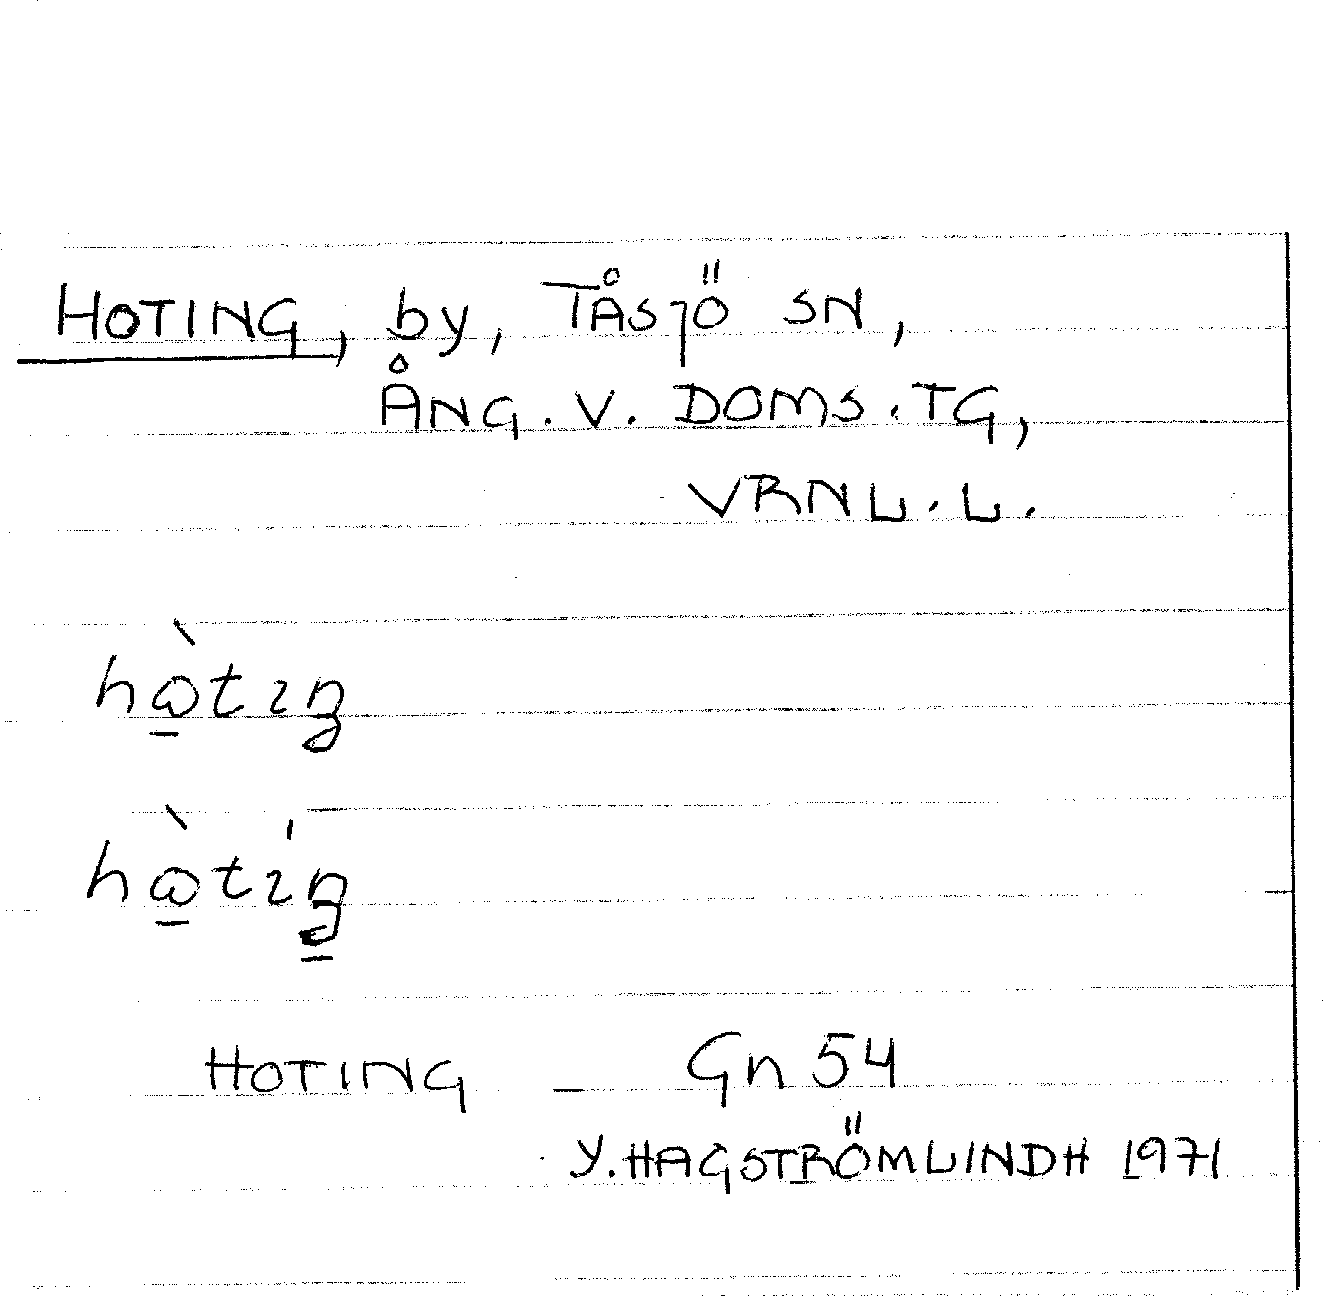 HOTING, by, TÅSJÖ SN,
ÅNG. V. DOMS. TG,
VRNL. L.
hὼ̱tıŋ
hὼ̱tı́ŋ̱
HOTING – Gn 54
Y. HAGSTRÖMLINDH 1971